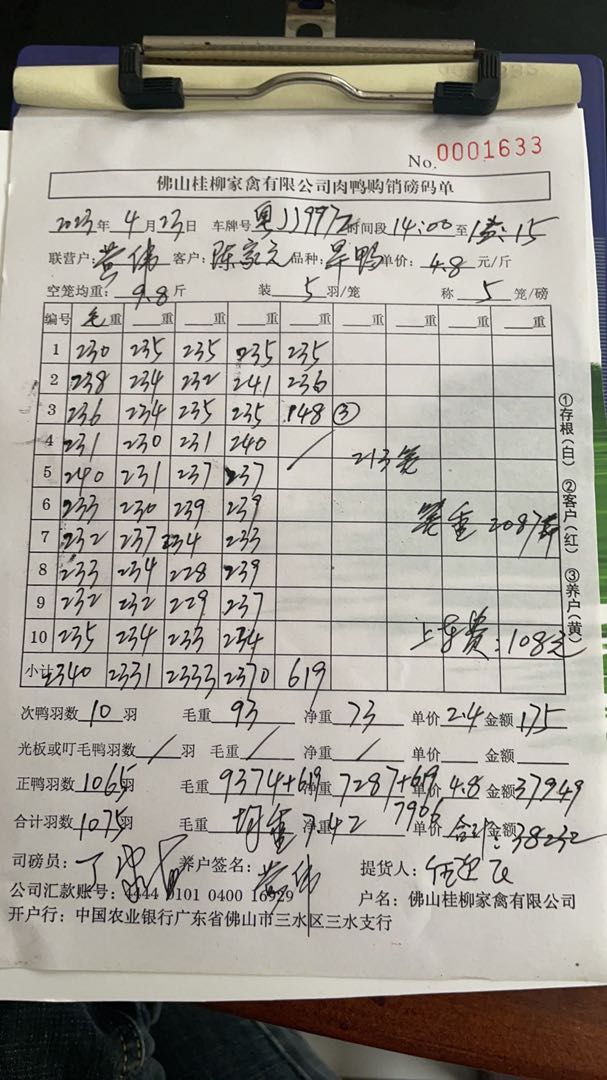 No. 0001633
佛山桂柳家禽有限公司肉鸭购销磅码单
2023年 4月23日 车牌号 粤J1997Z 时间段 14:00 至 :15
联营户: 黄伟 客户: 陈家元 品种: 旱鸭 单价: 4.8 元/斤
空笼均重: 9.8 斤 装 5 羽/笼 称 5 笼/磅
编号 毛重 重 重 重 重 重 重 重 重
1 230 235 235 235 235
2 238 234 232 241 236
3 236 234 235 235 148 ③
4 231 230 231 240 /
5 240 231 237 237 213笼
6 233 230 239 239
7 232 237 234 233 笼重 2087斤
8 233 234 228 239
9 232 232 229 237
10 235 234 233 234 上车费:108元
小计 2340 2331 2333 2370 619
①存根(白) ②客户(红) ③养户(黄)
次鸭羽数 10 羽 毛重 93 净重 73 单价 2.4 金额 175
光板或叮毛鸭羽数 / 羽 毛重 / 净重 / 单价 金额
正鸭羽数 1065 羽 毛重 9374+619 净重 7287+619 单价 4.8 金额 37949
7906
合计羽数 1075 羽 毛重 均重 7.42 单价 合计: 金额 38232
司磅员: 养户签名: 黄伟 提货人:
公司汇款账号: 4444 0101 0400 16929 户名: 佛山桂柳家禽有限公司
开户行: 中国农业银行广东省佛山市三水区三水支行